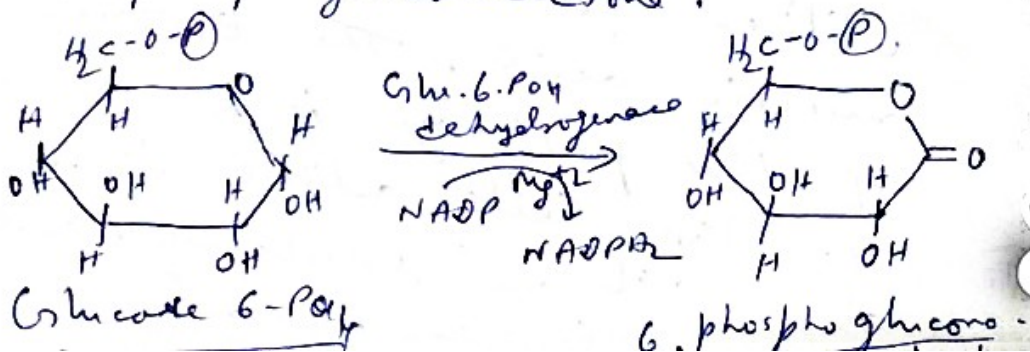 H₂C-O-Ⓟ
O
H
H
H
OH
OH
H
OH
H
OH
Glucose 6-PO₄
Glu.6.PO₄
dehydrogenase
Mg+2
NADP
NADPH₂
H₂C-O-Ⓟ.
O
H
H
=O
OH
OH
H
H
OH
6. phosphoglucono-